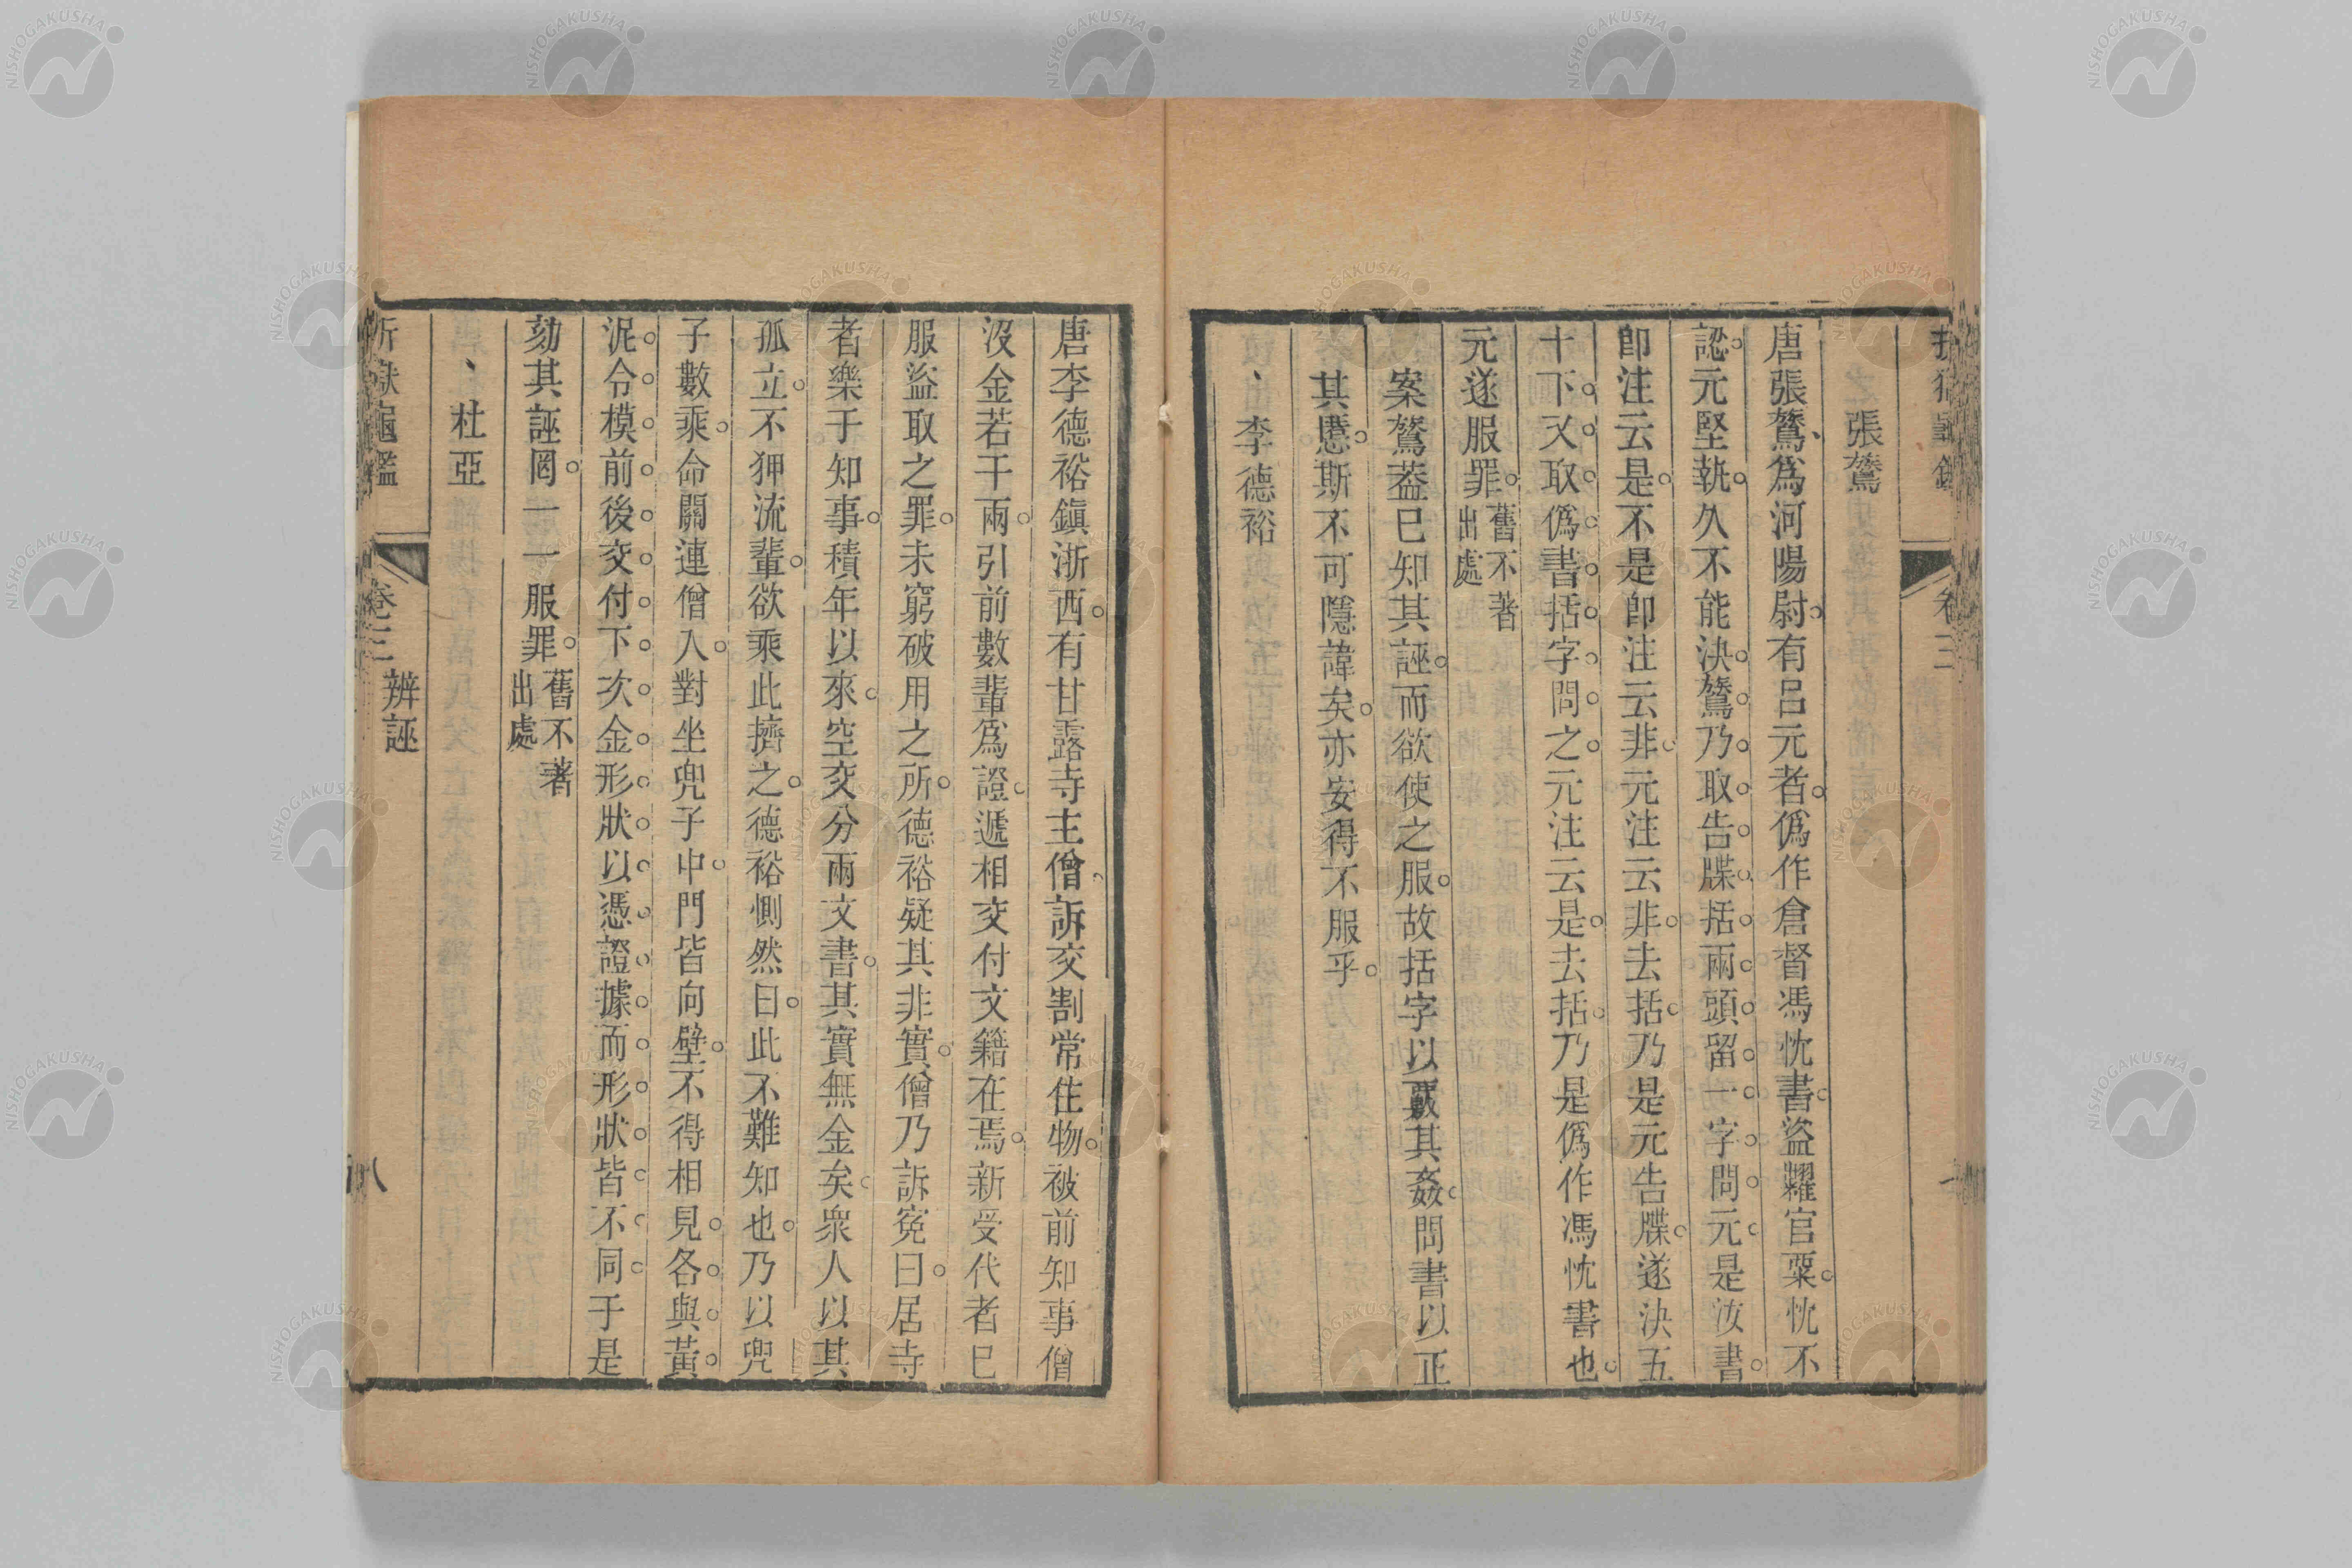 張鷟
唐張鷟爲河陽尉有呂元者僞作倉督馮忱書盜糶官粟忱不
認元堅執久不能決鷟乃取告牒括兩頭留一字問元是汝書
卽注云是不是卽注云非元注云非去括乃是元告牒遂決五
十下又取僞書括字問之元注云是去括乃是僞作馮忱書也
元遂服罪舊不著出處
案鷟葢已知其誣而欲使之服故括字以覈其姦問書以正
其慝斯不可隱諱矣亦安得不服乎
李德裕
唐李德裕鎭浙西有甘露寺主僧訴交割常住物被前知事僧
沒金若干兩引前數輩爲證遞相交付文籍在焉新受代者已
服盜取之罪未窮破用之所德裕疑其非實僧乃訴寃曰居寺
者樂于知事積年以來空交分兩文書其實無金矣衆人以其
孤立不狎流輩欲乘此擠之德裕惻然曰此不難知也乃以兜
子數乘命關連僧入對坐兜子中門皆向壁不得相見各與黃
泥令模前後交付下次金形狀以憑證據而形狀皆不同于是
劾其誣罔一一服罪舊不著出處
杜亞
卷三 辨誣
八
NISHOGAKUSHA